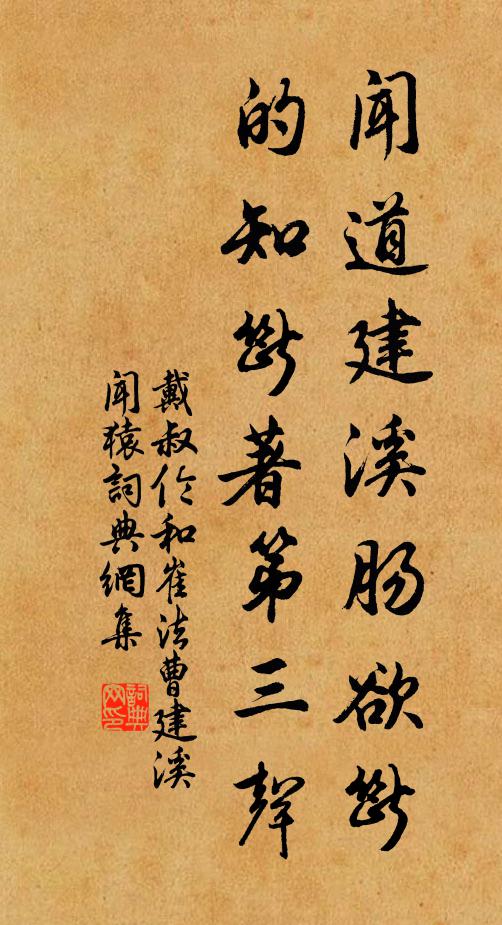 闻道建溪肠欲断
的知断著第三聲
戴叔伦和崔法曹建溪
闻猿詞典網集
詞典网印